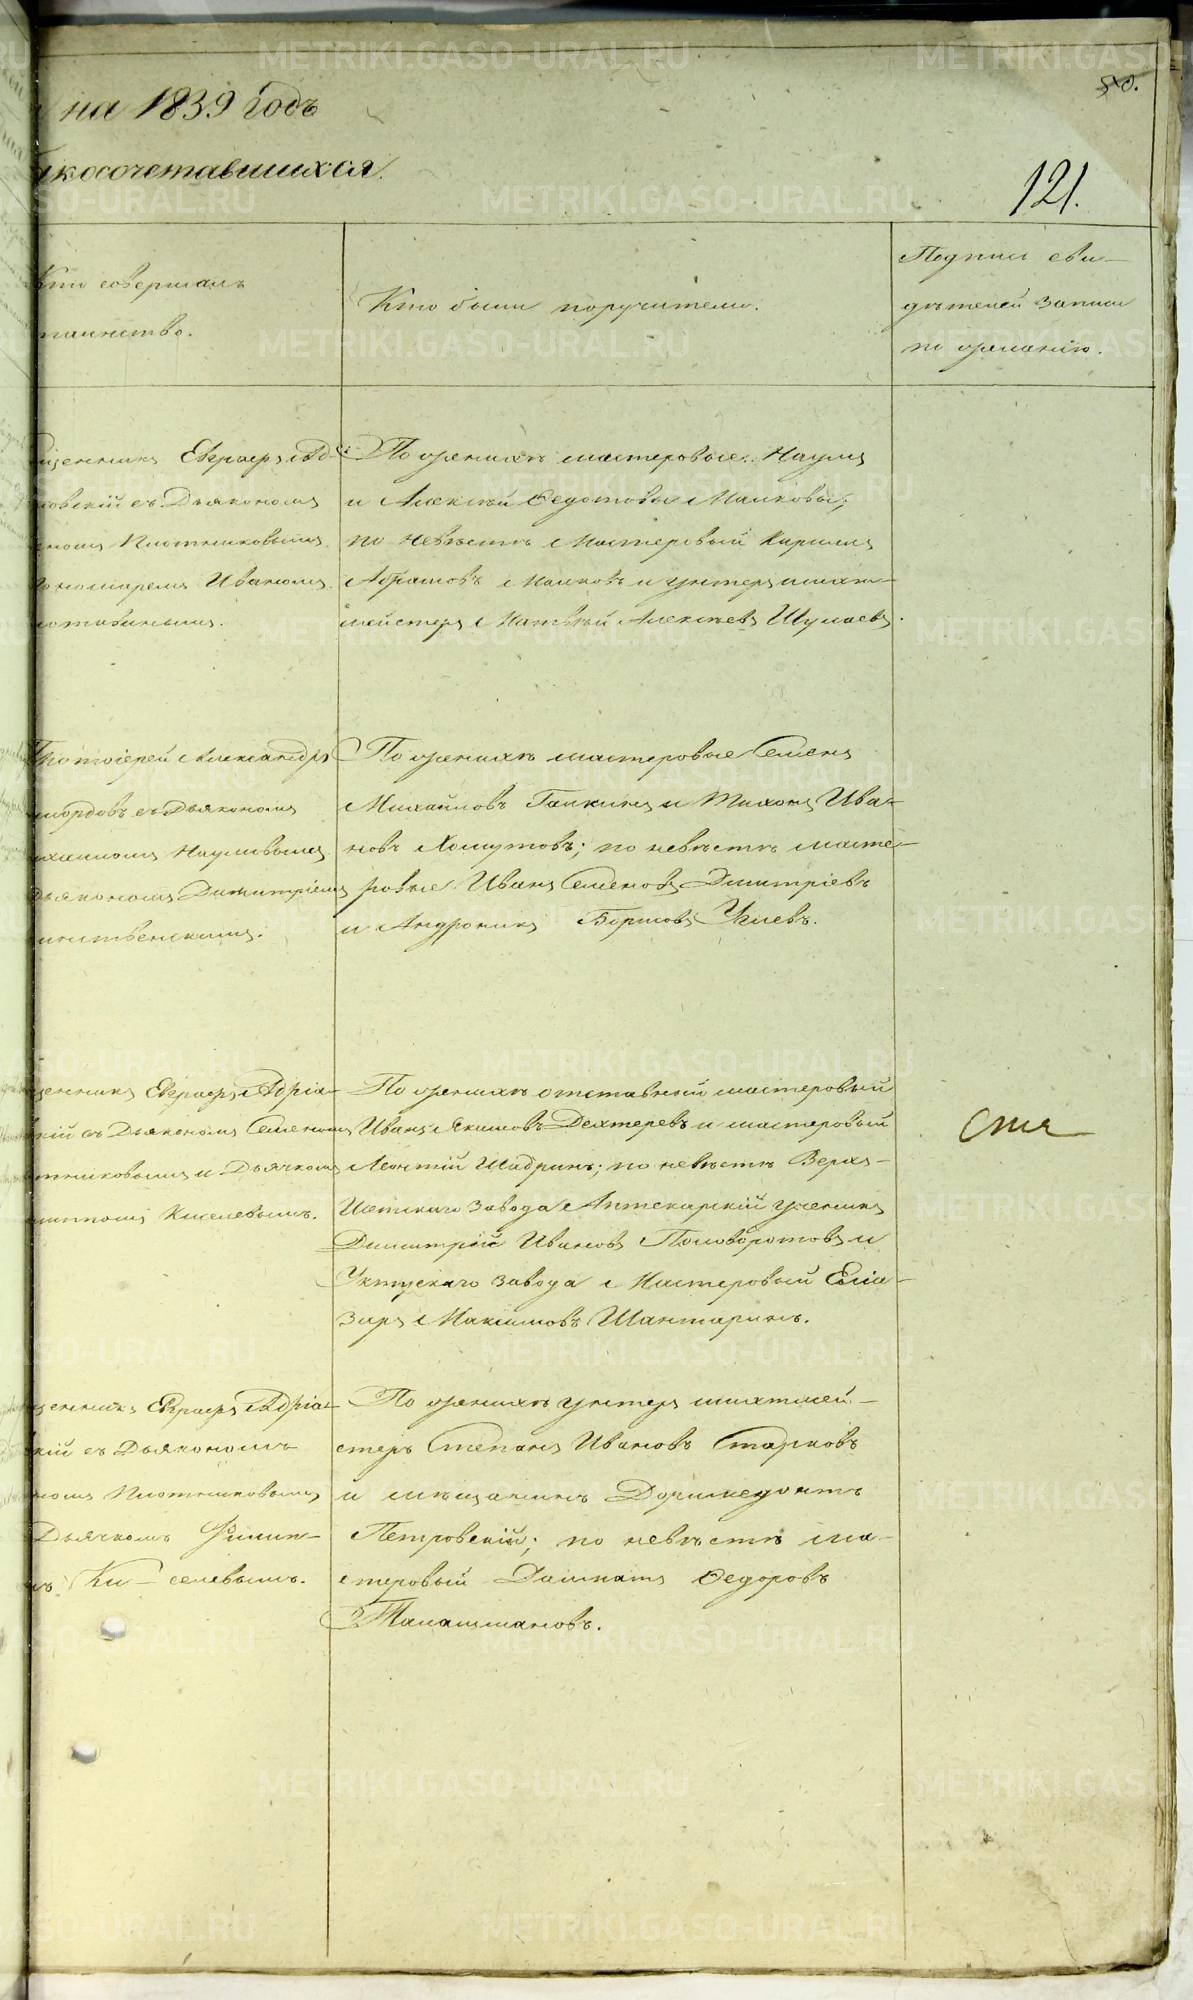 80.
на 1839 Годъ
косочетавшихся.
121.
Кто совершалъ
таинство.
Кто были поручители.
Подписи сви-
дѣтелей записи
по желанію.
щенникъ Евграфъ Ад-
новскій съ Дьякономъ
Плотниковымъ
пономаремъ Иваномъ
По женихѣ мастеровые: Наумъ
и Алексѣй Ѳедотовы Малковы;
по невѣстѣ Мастеровый Кирилъ
Абрамовъ Малковъ и унтеръ шихт-
мейстеръ Матвѣй Алексѣевъ Шулаевъ.
Протоіерей Александръ
съ Дьякономъ
Наумовымъ
Дьякономъ Димитріемъ
По женихѣ мастеровые Семенъ
Михайловъ Галкинъ и Тихонъ Ива-
новъ Хомутовъ; по невѣстѣ масте-
ровые Иванъ Семеновъ Дмитріевъ
и Андроникъ Борисовъ
щенникъ Евграфъ Адріа-
скій съ Дьякономъ Семеномъ
тниковымъ и Дьячкомъ
Киселевымъ.
По женихѣ отставный мастеровый
Иванъ Якимовъ Дехтеревъ и мастеровый
Леонтій Шадринъ; по невѣстѣ Верхъ-
Исетскаго завода Аптекарскій ученикъ
Димитрій Ивановъ Половоротовъ и
Уктускаго завода Мастеровый Елиа-
заръ Максимовъ Шантаринъ.
щенникъ Евграфъ Адріа-
скій съ Дьякономъ
Плотниковымъ
Дьячкомъ Филип-
Ки-селевымъ.
По женихѣ унтеръ шихтмей-
стеръ Степанъ Ивановъ Старковъ
и мѣщанинъ Доримедонтъ
Петровскій; по невѣстѣ ма-
стеровый Далматъ Ѳедоровъ
Талашмановъ.
METRIKI.GASO-URAL.RU